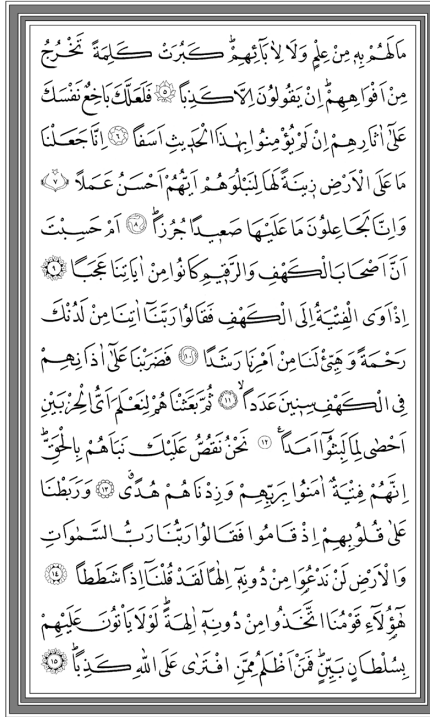 مَالَهُمْ بِهِ مِنْ عِلْمٍ وَلَا لِاٰبَٓائِهِمْۜ كَبُرَتْ كَلِمَةً تَخْرُجُ
مِنْ اَفْوَاهِهِمْۜ اِنْ يَقُولُونَ اِلَّا كَذِبًا ﴿٥﴾ فَلَعَلَّكَ بَاخِعٌ نَفْسَكَ
عَلٰٓى اٰثَارِهِمْ اِنْ لَمْ يُؤْمِنُوا بِهٰذَا الْحَدٖيثِ اَسَفًا ﴿٦﴾ اِنَّا جَعَلْنَا
مَا عَلَى الْاَرْضِ زٖينَةً لَهَا لِنَبْلُوَهُمْ اَيُّهُمْ اَحْسَنُ عَمَلًا ﴿٧﴾
وَاِنَّا لَجَاعِلُونَ مَا عَلَيْهَا صَعٖيدًا جُرُزًاۜ ﴿٨﴾ اَمْ حَسِبْتَ
اَنَّ اَصْحَابَ الْكَهْفِ وَالرَّقٖيمِ كَانُوا مِنْ اٰيَاتِنَا عَجَبًا ﴿٩﴾
اِذْ اَوَى الْفِتْيَةُ اِلَى الْكَهْفِ فَقَالُوا رَبَّنَٓا اٰتِنَا مِنْ لَدُنْكَ
رَحْمَةً وَهَيِّئْ لَنَا مِنْ اَمْرِنَا رَشَدًا ﴿١٠﴾ فَضَرَبْنَا عَلٰٓى اٰذَانِهِمْ
فِي الْكَهْفِ سِنٖينَ عَدَدًاۙ ﴿١١﴾ ثُمَّ بَعَثْنَاهُمْ لِنَعْلَمَ اَيُّ الْحِزْبَيْنِ
اَحْصٰى لِمَا لَبِثُٓوا اَمَدًاࣖ ﴿١٢﴾ نَحْنُ نَقُصُّ عَلَيْكَ نَبَاَهُمْ بِالْحَقِّۜ
اِنَّهُمْ فِتْيَةٌ اٰمَنُوا بِرَبِّهِمْ وَزِدْنَاهُمْ هُدًىۗ ﴿١٣﴾ وَرَبَطْنَا
عَلٰى قُلُوبِهِمْ اِذْ قَامُوا فَقَالُوا رَبُّنَا رَبُّ السَّمٰوَاتِ
وَالْاَرْضِ لَنْ نَدْعُوَا مِنْ دُونِهٖٓ اِلٰهًا لَقَدْ قُلْنَٓا اِذًا شَطَطًا ﴿١٤﴾
هٰٓؤُ۬لَٓاءِ قَوْمُنَا اتَّخَذُوا مِنْ دُونِهٖٓ اٰلِهَةًۜ لَوْلَا يَاْتُونَ عَلَيْهِمْ
بِسُلْطَانٍ بَيِّنٍۜ فَمَنْ اَظْلَمُ مِمَّنِ افْتَرٰى عَلَى اللّٰهِ كَذِبًاۜ ﴿١٥﴾